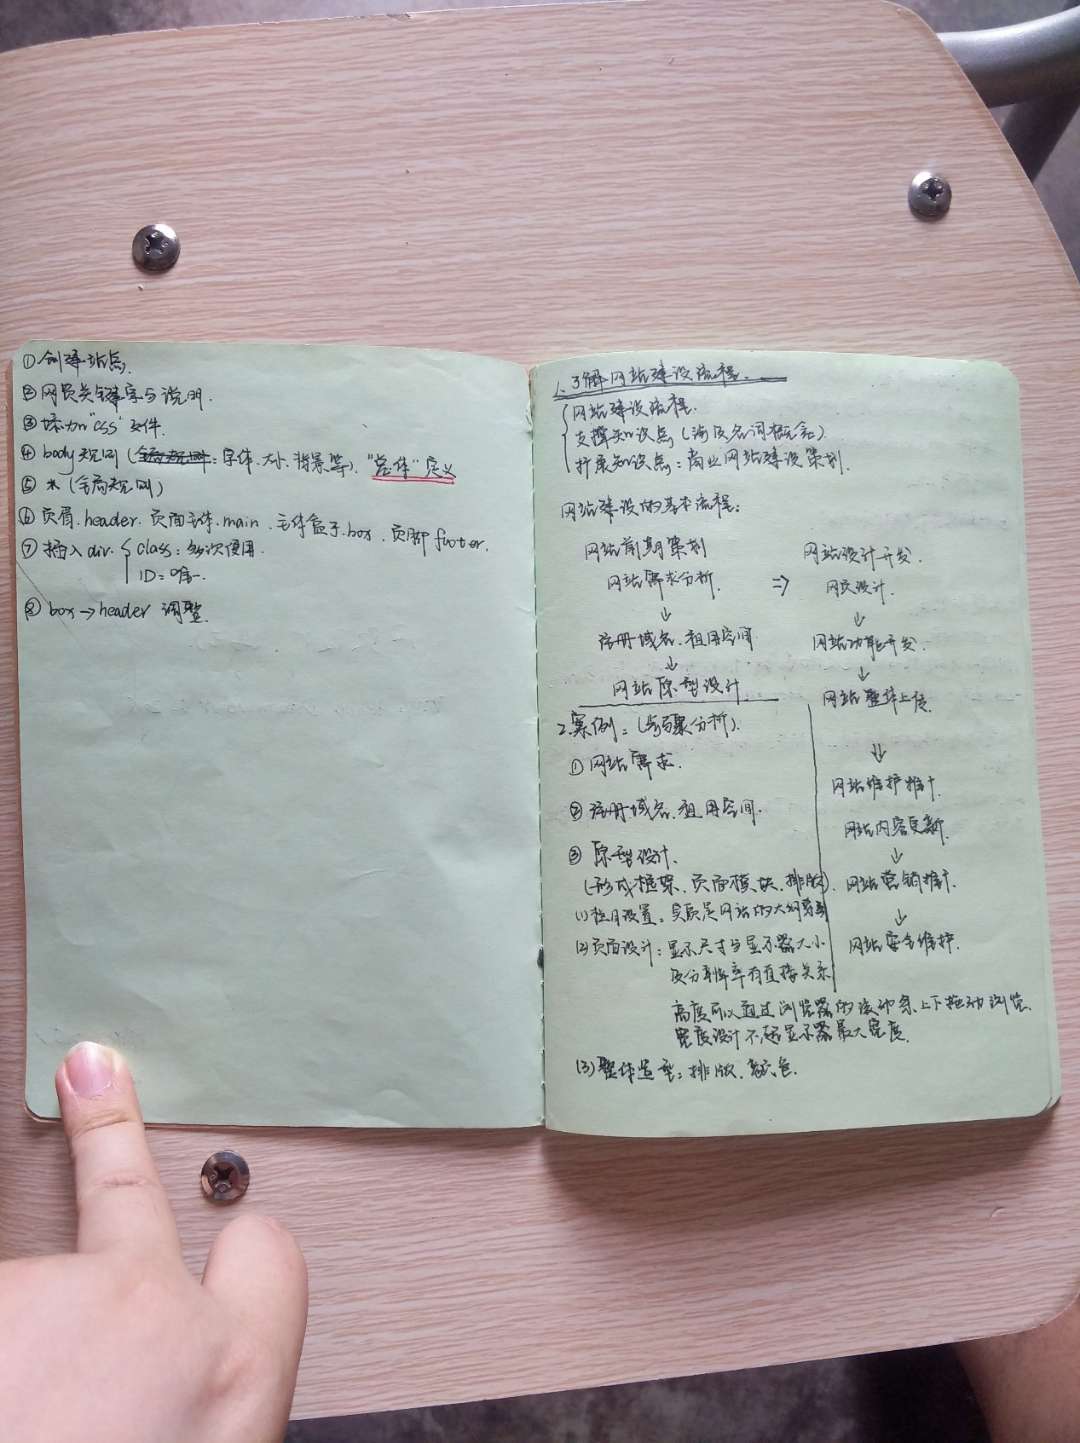 ①创建站点.
②网页关键字与说明.
③添加"css"文件.
④ body规则(全局规则:字体、大小、背景等)."总体"定义
⑤ *(全局规则)
⑥ 页眉.header.页面主体.main.主体盒子.box.页脚footer.
⑦ 插入div. class:多次使用.
ID:唯一.
⑧ box→header 调整.
1.了解网站建设流程.
网站建设流程.
支撑知识点(涉及名词概念).
扩展知识点:商业网站建设策划.
网站建设的基本流程:
网站前期策划
网站需求分析.
↓
注册域名.租用空间
↓
网站原型设计.
⇒
网站设计开发.
网页设计.
↓
网站功能开发.
↓
网站整体上传.
⇓
网站维护推广.
网站内容更新.
↓
网站营销推广.
↓
网站安全维护.
2.案例:(步骤分析).
①网站需求.
②注册域名.租用空间.
③ 原型设计.
(形成框架、页面模块、排版).
(1)栏目设置:实质是网站的大纲索引
(2)页面设计:显示尺寸与显示器大小
及分辨率有直接关系
高度可以通过浏览器的滚动条上下拖动浏览.
宽度设计不超显示器最大宽度.
(3)整体造型:排版.颜色.